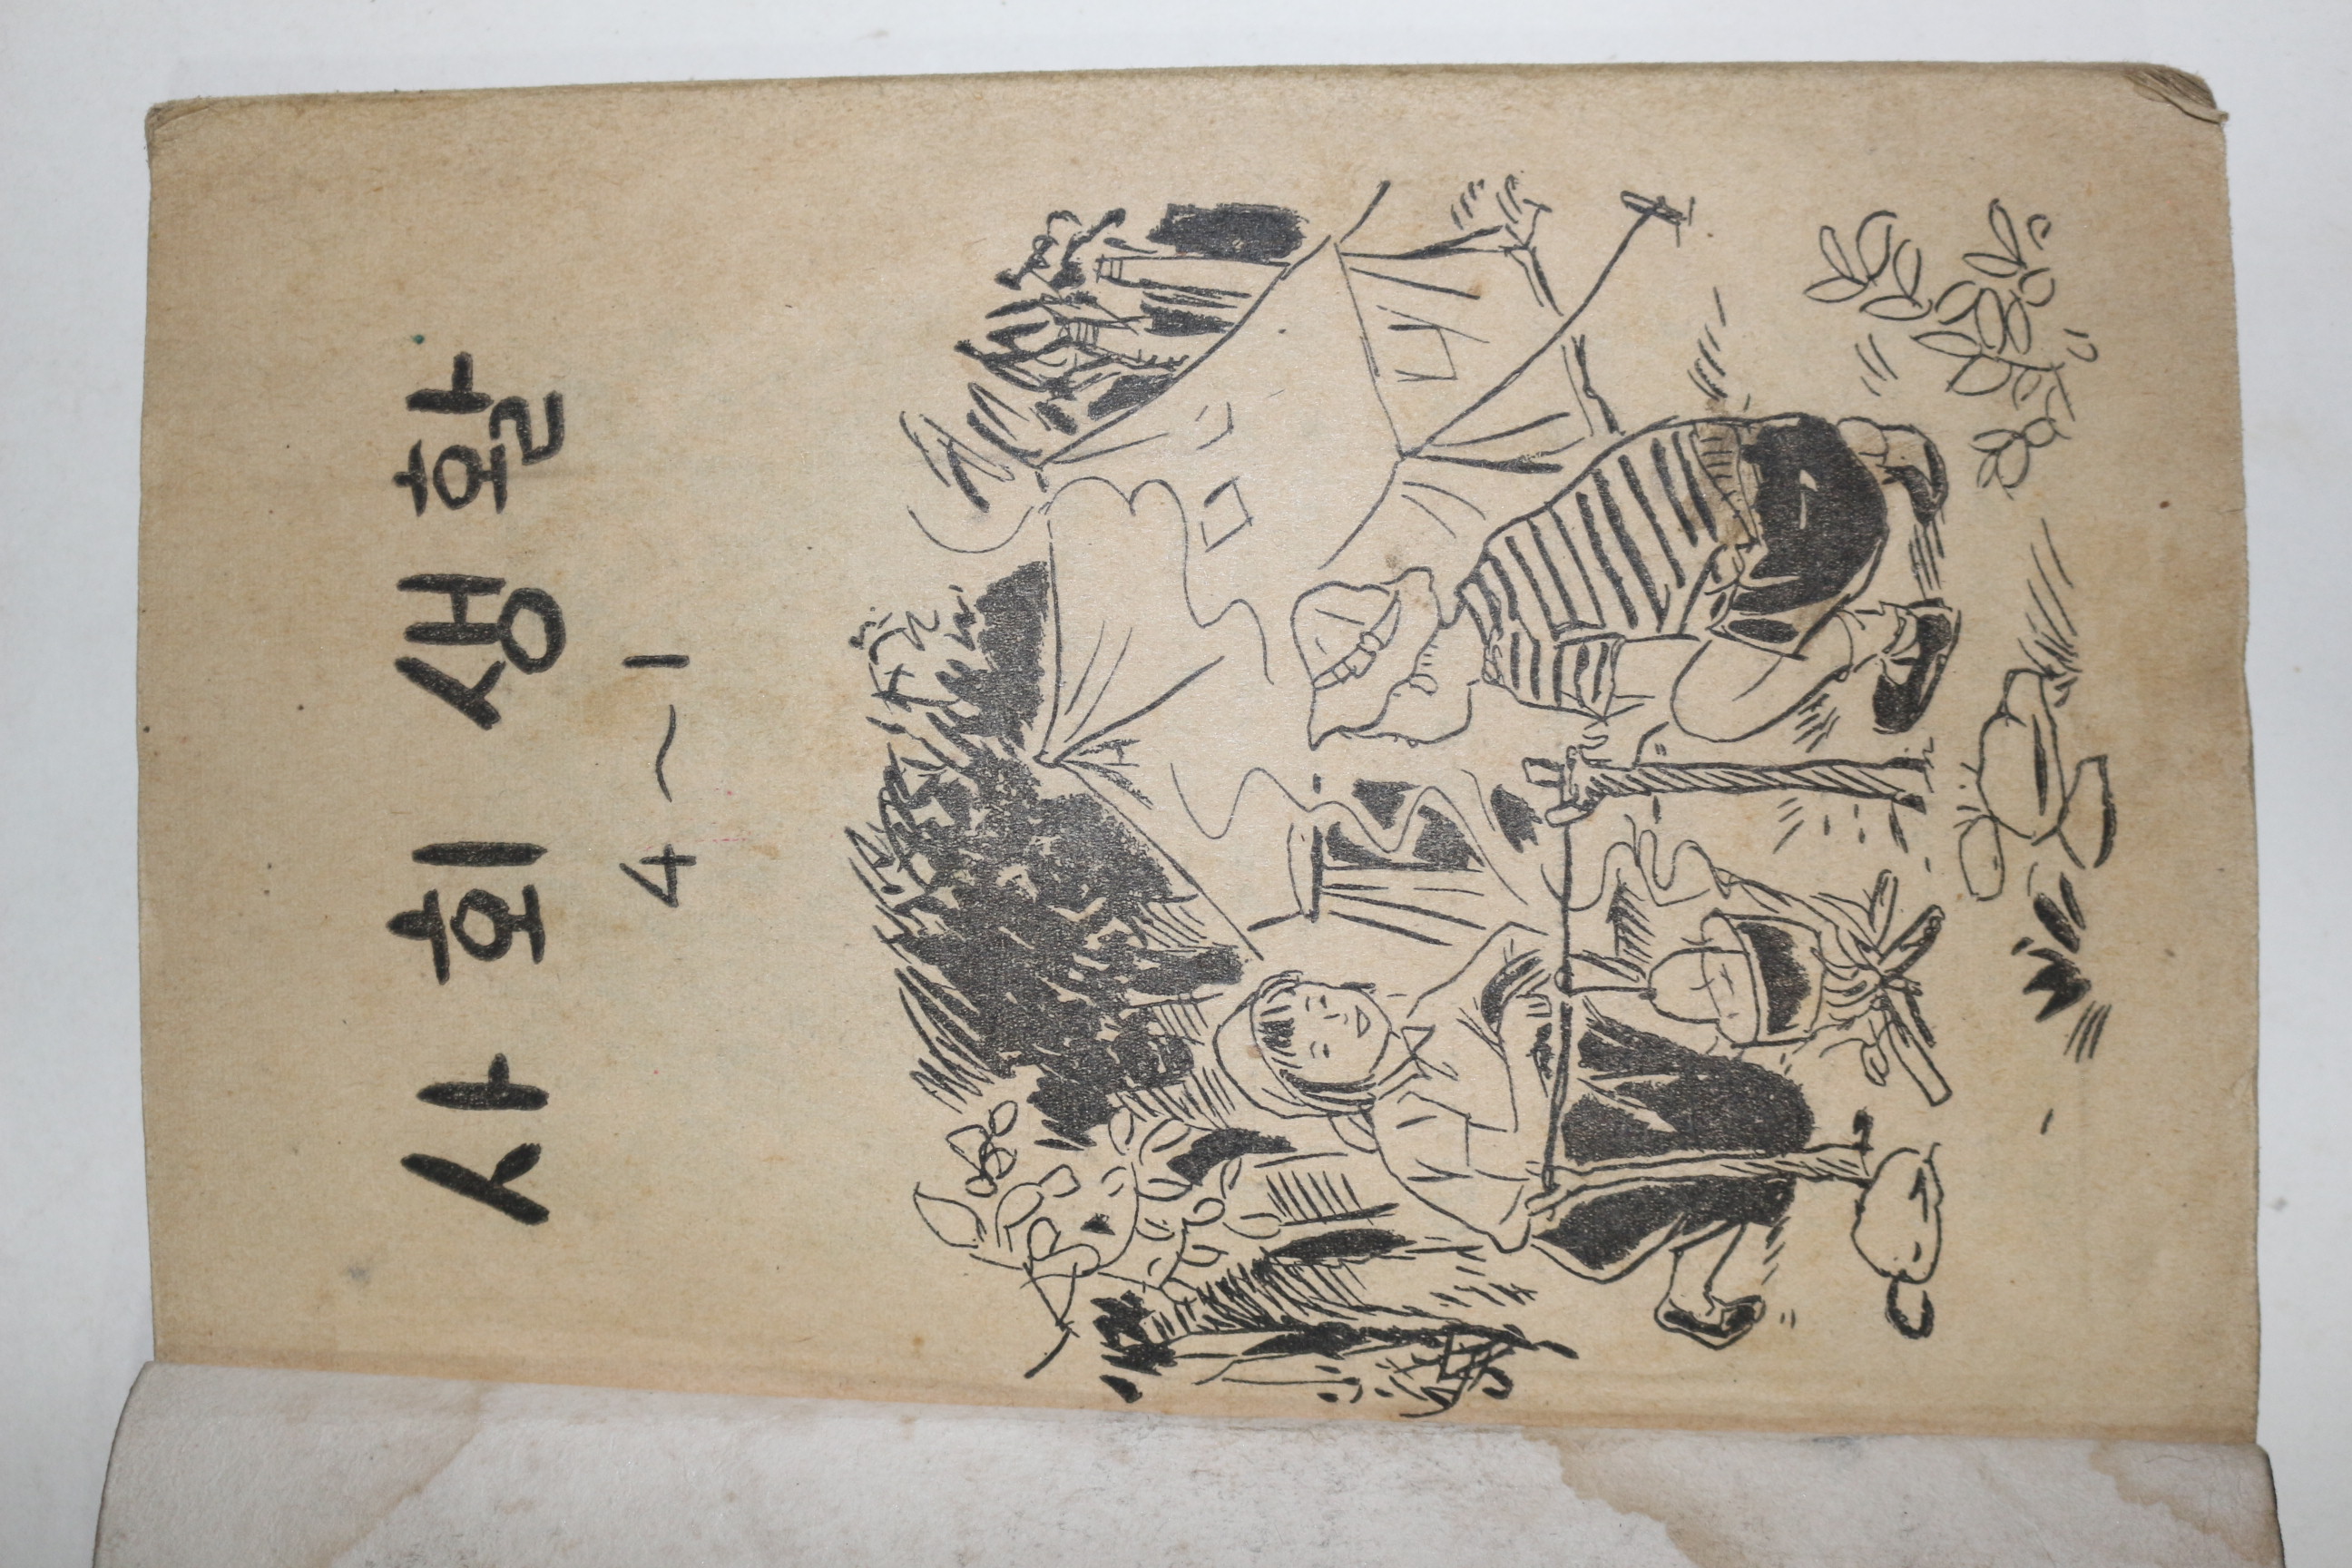 사회생활
4~1